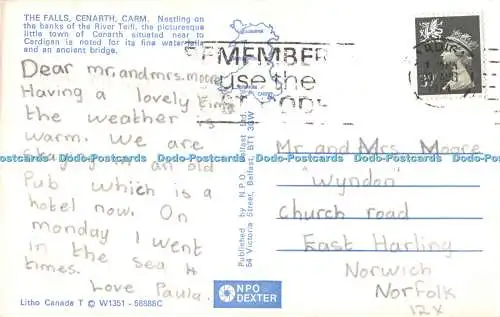 THE FALLS, CENARTH, CARM. Nestling on
the banks of the River Teifi, the picturesque
little town of Cenarth situated near to
Cardigan is noted for its fine waterfalls
and an ancient bridge.
Dear mr. and mrs. moore
Having a lovely time
the weather is
warm. We are
staying in an old
Pub which is a
hotel now. On
monday I went
in the sea 4
times.
Love Paula.
Litho Canada T © W1351 - 58888C
Published by N.P.O. Belfast Ltd.
54 Victoria Street, Belfast, BT1 3GW
NPO
DEXTER
MEMBER
use the
Mr. and Mrs. Moore
Wyndon
Church road
East Harling
Norwich
Norfolk
12X
Dodo-Postcards Dodo-Postcards Dodo-Postcards Dodo-Postcards Dodo-Postcards Dodo-Postcards